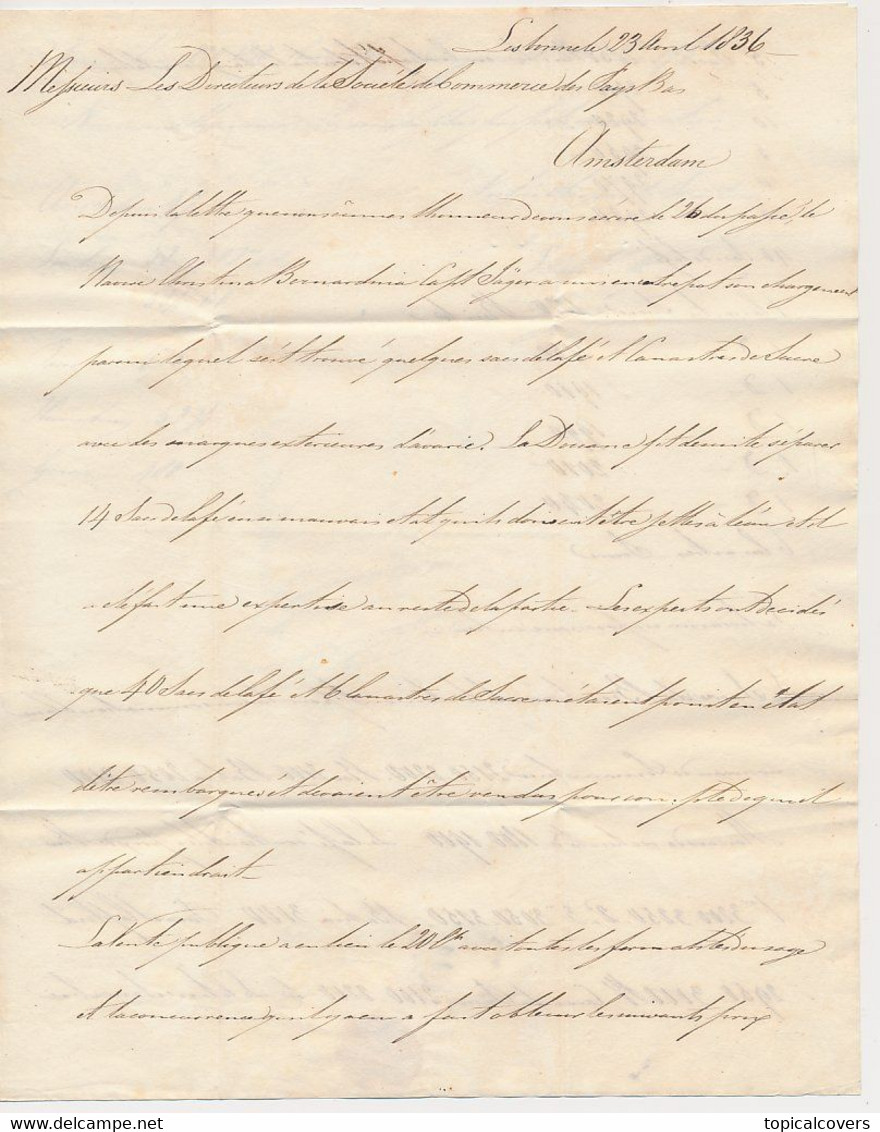 Lisbonne le 23 Avril 1836
Messieurs Les Directeurs de la Société de Commerce des Pays Bas
Amsterdam
Depuis la lettre que nous eûmes l'honneur de vous écrire le 26 du passé, le
Navire Christina Bernardina Capt. Säger a mis en entrepot son chargement
parmi lequel s'est trouvé quelques sacs de Café et Canastres de Sucre
avec des marques exterieures d'avarie. La Douane fit de suite séparer
14 Sacs de Café en si mauvais etat qu'ils doivent être jettes à l'eau et il
a été fait une expertise au reste de la partie. Les experts ont decidés
que 40 Sacs de Café et 6 Canastres de Sucre n'étaient point en état
d'être rembarqués et devaient être vendus pour compte de qui il
appartiendrait
La Vente publique a eu lieu le 20 Ct. avec toutes les formalités d'usage
et la concurrence qu'il y a eu a fait obtenir les suivants prix
topicalcovers